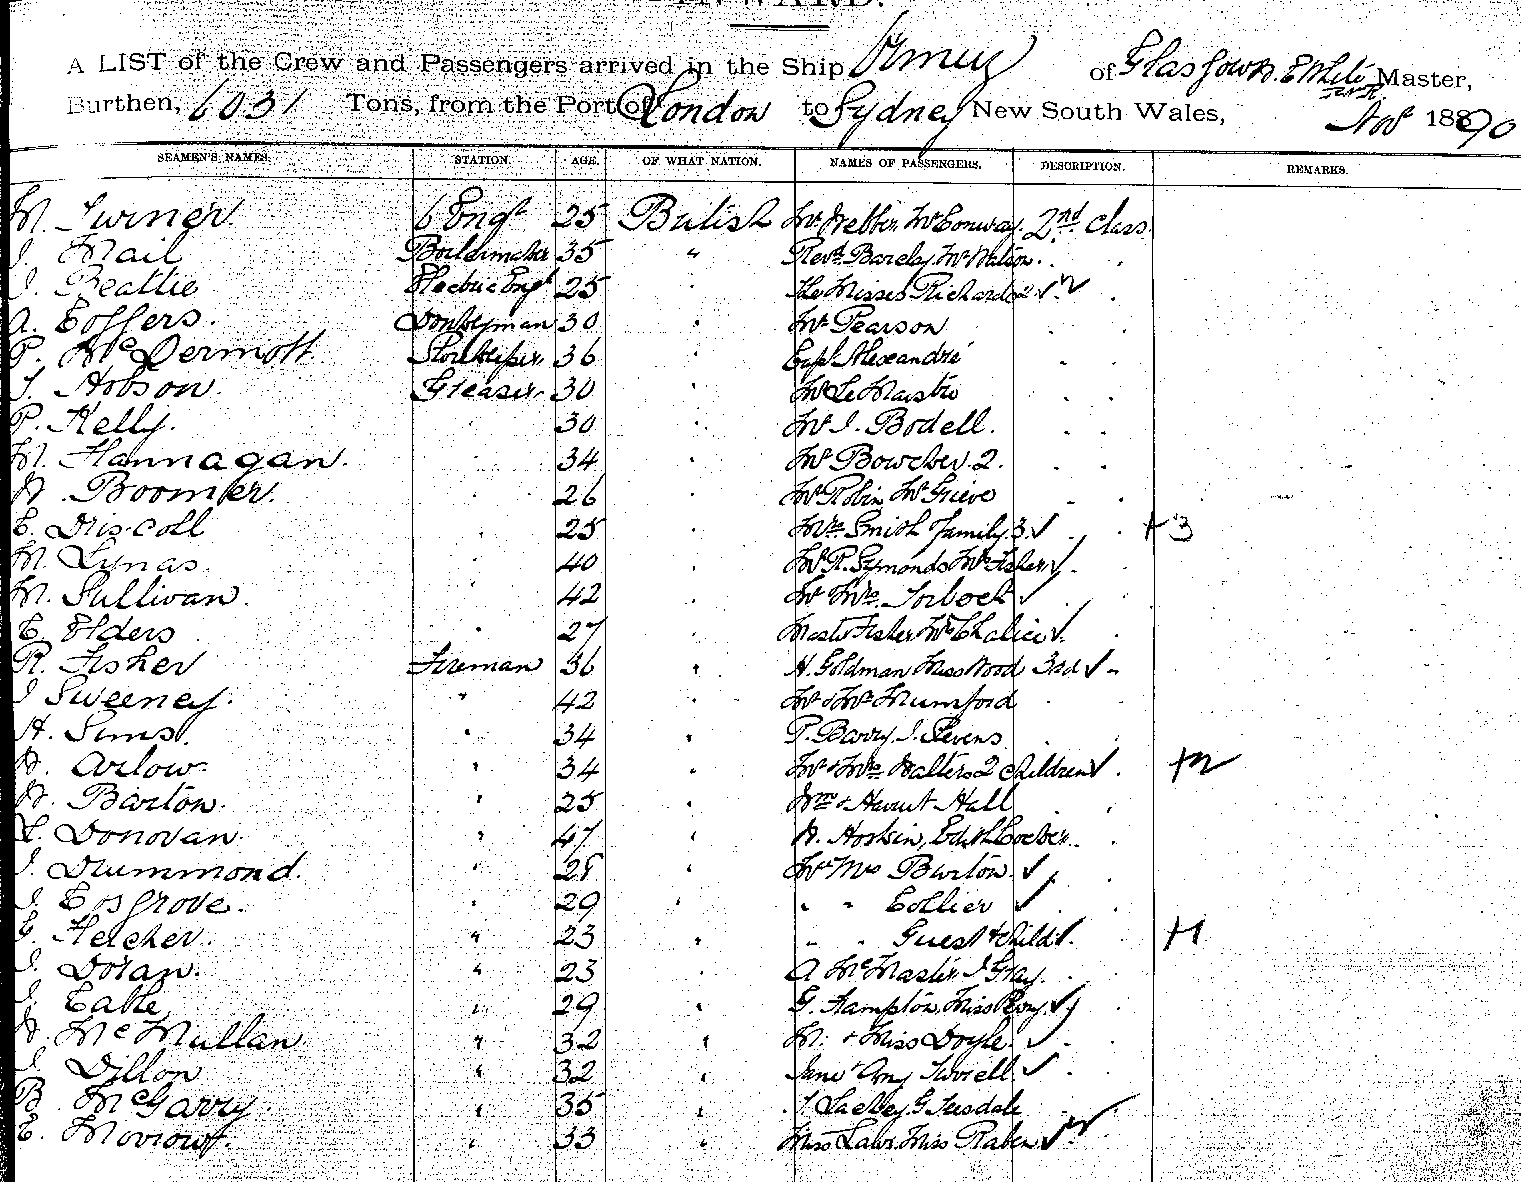 INWARD.
A LIST of the Crew and Passengers arrived in the Ship Ormuz of Glasgow Master,
Burthen, 6031 Tons, from the Port of London to Sydney New South Wales, Nov 1890
SEAMEN'S NAMES. STATION. AGE. OF WHAT NATION. NAMES OF PASSENGERS. DESCRIPTION. REMARKS.
M. Turner 6 Engr 25 British Mr Conway. 2nd Class.
J. Nail Boilermaker 35 " Revd Barclay Mr Watson.
J. Beattie Electric Engr 25 The Misses Richards 2 ✓
A. Coffers. Donkeyman 30 Mr Pearson
P. McDermott Storekeeper 36 Capt Alexandre
T. Hobson Greaser 30 Mr Le Maistre
P. Kelly. 30 Mr J. Bodell.
M. Flannagan. 34 Mr Bowcher. 2.
W. Boomer. 26 Mr Robin Mr Grieve
C. Driscoll 25 Mrs Smith family 3 ✓ + 3
M. Lynas. 40 Mr R. Symonds Mrs Fisher ✓
M. Sullivan. 42 Mr Mrs. Torbock ✓
C. Elders 27 Master Fisher Mrs Chalice ✓
R. Fisher Fireman 36 " H. Goldman Miss Wood 3rd ✓
J Sweeney. " 42 Mr & Mrs Mumford
H. Sims. " 34 " P. Barry. J. Stevens
W. Arlow. " 34 " Mr & Mrs Walters 2 children ✓ + 2
W. Barton. " 25 " Hall
Donovan " 47 " W. Hoskin,
J. Drummond. " 28 " Mr Mrs Burton ✓
J. Cosgrove. " 29 " " " Collier ✓
Fletcher. " 23 " " " Guest & child ✓ +1
J. Doran. " 23 A McMaster J Gray.
J. Cable " 29 " G. Hampton, Miss ✓
W. McMullan " 32 " M. & Miss Doyle. ✓
J. Dillon " 32 " Jane Amy ✓
B. McGarry. " 35 " Lackey G Teesdale
C. " 33 " Miss Law. Miss Raben ✓